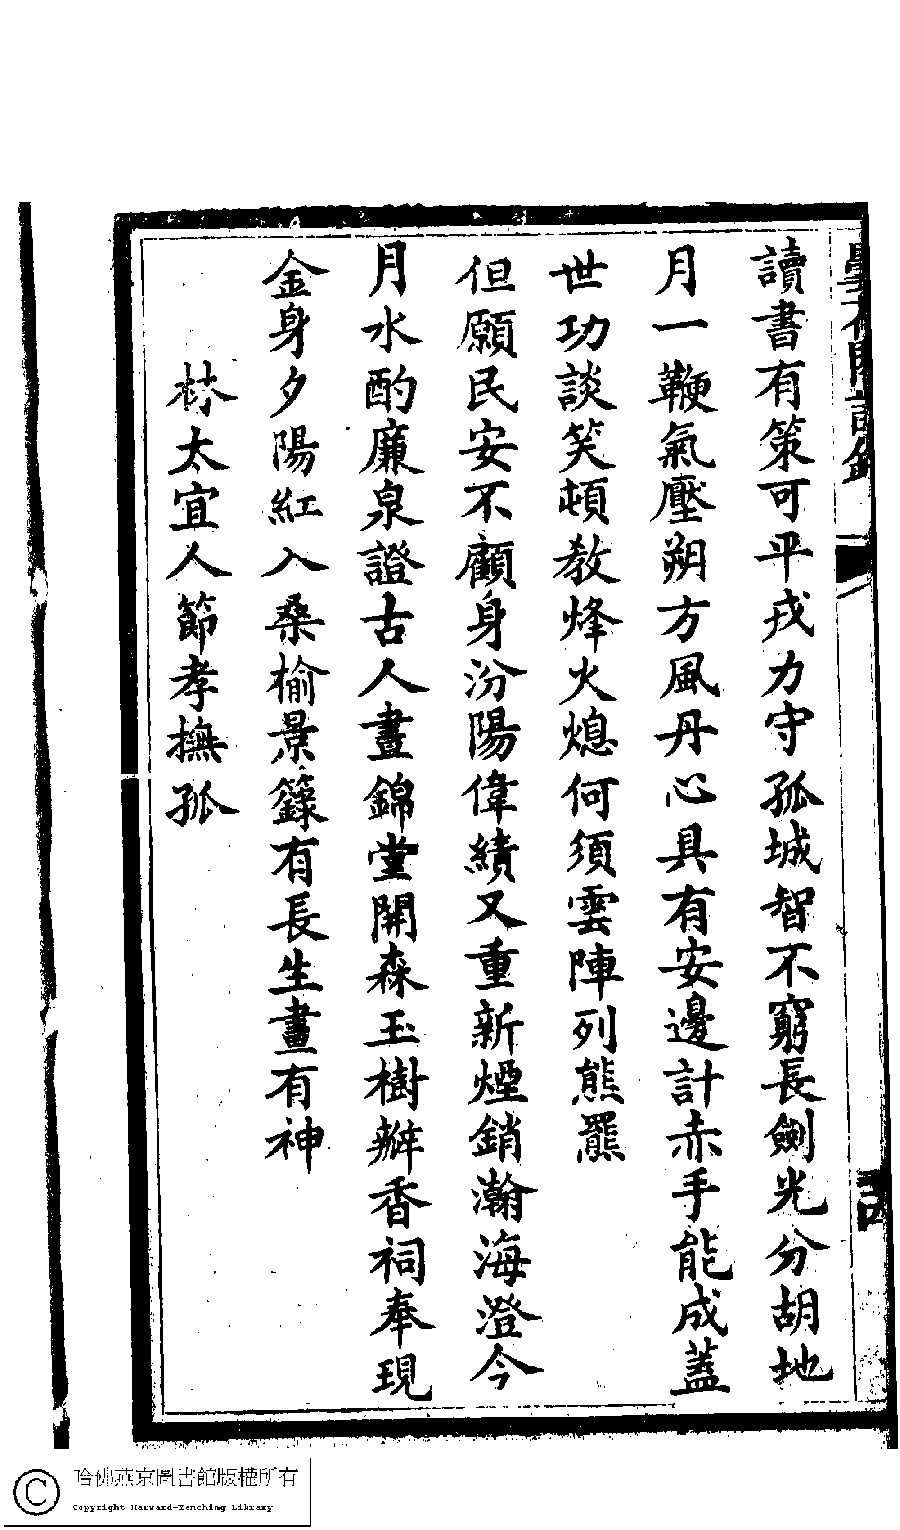 讀書有策可平戎力守孤城智不窮長劍光分胡地
月一鞭氣壓朔方風丹心具有安邊計赤手能成蓋
世功談笑頓教烽火熄何須雲陣列熊羆
但願民安不顧身汾陽偉績又重新煙銷瀚海澄今
月水酌廉泉證古人晝錦堂開森玉樹瓣香祠奉現
金身夕陽紅入桑榆景籙有長生畫有神
林太宜人節孝撫孤
哈佛燕京圖書館版權所有
Copyright Harvard-Yenching Library